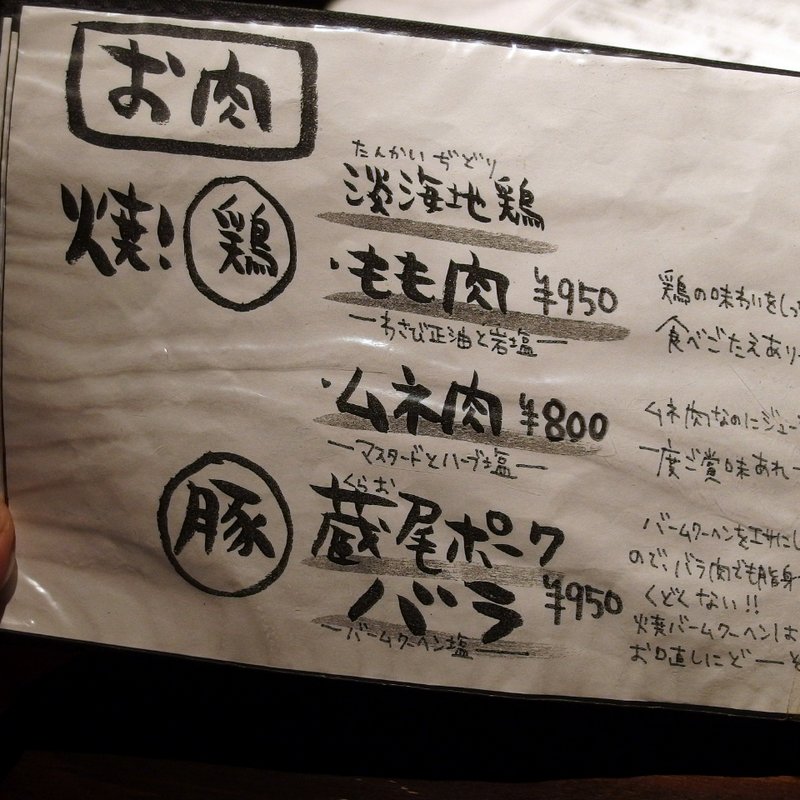 お肉
焼! 鶏
たんかいぢどり
淡海地鶏
・もも肉 ¥950
―わさび正油と岩塩―
鶏の味わいをしっ
食べごたえあり
・ムネ肉 ¥800
―マスタードとハーブ塩―
ムネ肉なのにジュー
一度ご賞味あれ
豚
くらお
蔵尾ポーク
バラ ¥950
―バームクーヘン塩―
バームクーヘンをエサにし
ので、バラ肉でも脂身
くどくない!!
焼バームクーヘンはお
お口直しにどーぞ